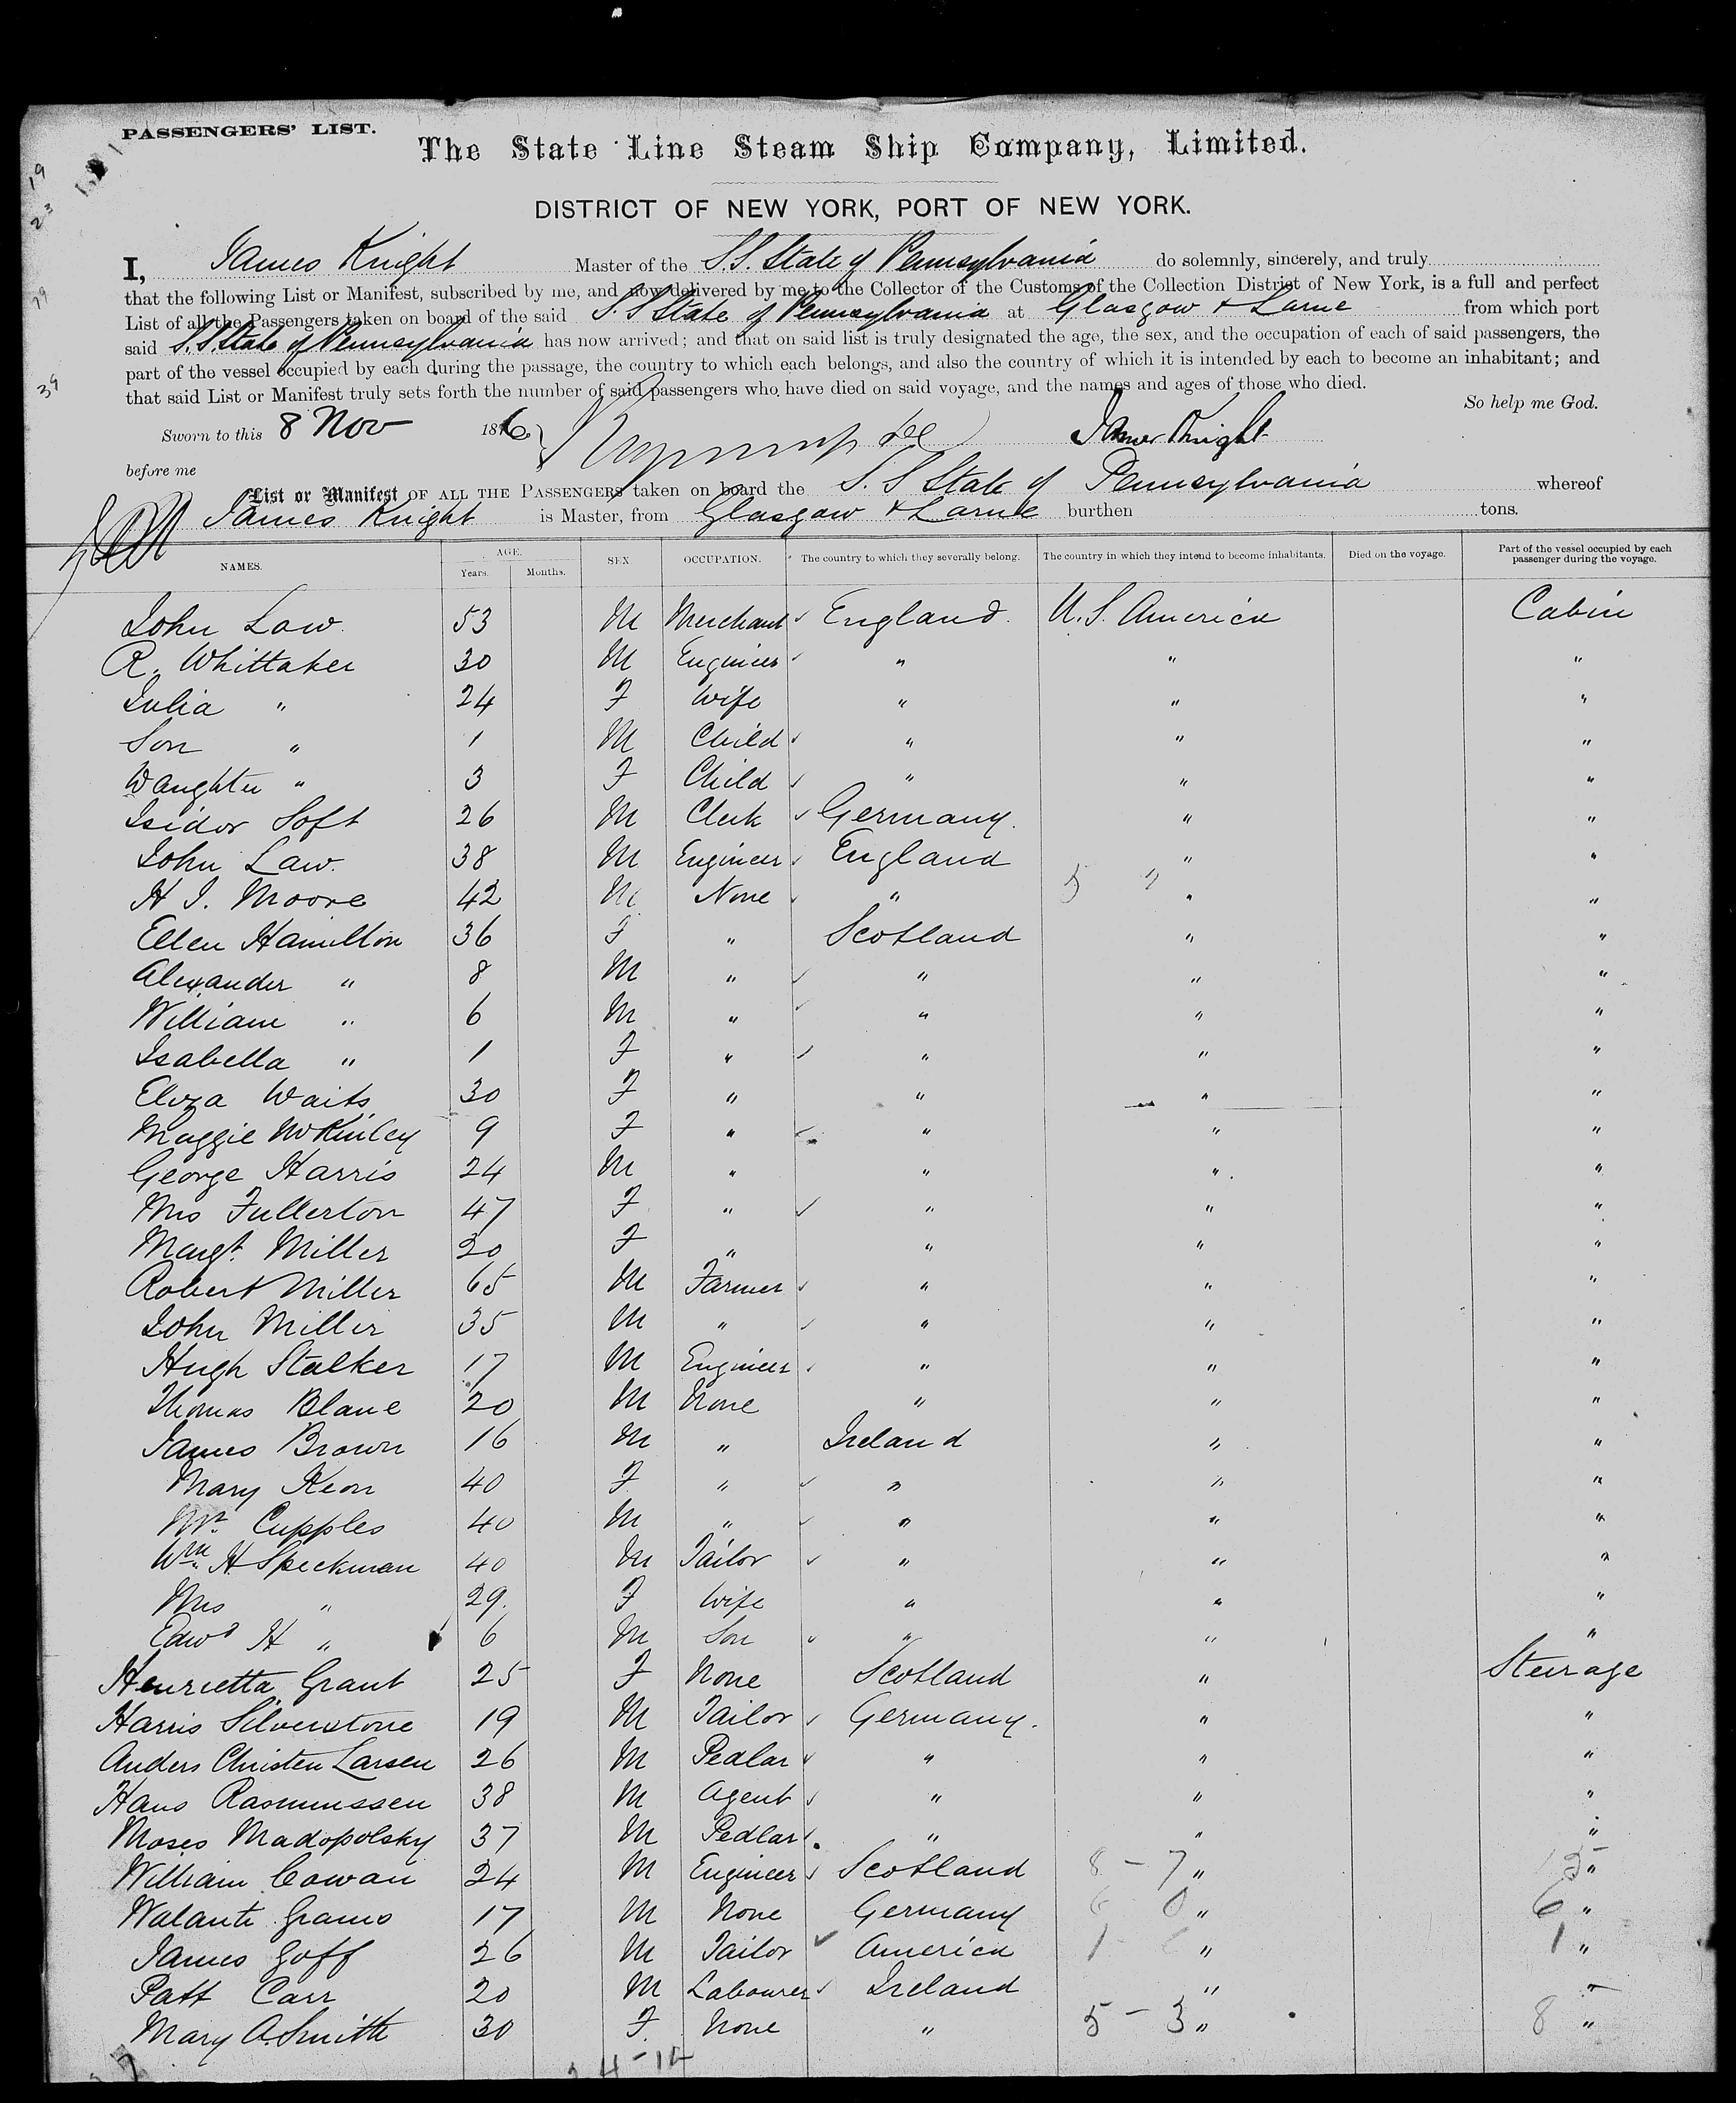 PASSENGERS' LIST.
The State Line Steam Ship Company, Limited.
DISTRICT OF NEW YORK, PORT OF NEW YORK.
I, James Knight Master of the S.S. State of Pennsylvania do solemnly, sincerely, and truly
that the following List or Manifest, subscribed by me, and now delivered by me to the Collector of the Customs of the Collection District of New York, is a full and perfect
List of all the Passengers taken on board of the said S.S State of Pennsylvania at Glasgow & Larne from which port
said S.S. State of Pennsylvania has now arrived; and that on said list is truly designated the age, the sex, and the occupation of each of said passengers, the
part of the vessel occupied by each during the passage, the country to which each belongs, and also the country of which it is intended by each to become an inhabitant; and
that said List or Manifest truly sets forth the number of said passengers who have died on said voyage, and the names and ages of those who died.
So help me God.
Sworn to this 8 Nov 1876 James Knight
before me
List or Manifest OF ALL THE PASSENGERS taken on board the S.S State of Pennsylvania whereof
James Knight is Master, from Glasgow & Larne burthen tons.
NAMES. AGE. Years. Months. SEX OCCUPATION. The country to which they severally belong. The country in which they intend to become inhabitants. Died on the voyage. Part of the vessel occupied by each passenger during the voyage.
John Law 53 M Merchant England U.S. America Cabin
R. Whittaker 30 M Engineer " " "
Julia " 24 F Wife " " "
Son " 1 M Child " " "
Daughter " 3 F Child " " "
Isidor Soft 26 M Clerk Germany " "
John Law. 38 M Engineer England " "
H J. Moore 42 M None " " "
Ellen Hamilton 36 F " Scotland " "
Alexander " 8 M " " " "
William " 6 M " " " "
Isabella " 1 F " " " "
Eliza Waits 30 F " " " "
Maggie McKinley 9 F " " " "
George Harris 24 M " " " "
Mrs Fullerton 47 F " " " "
Margt. Miller 20 F " " " "
Robert Miller 65 M Farmer " " "
John Miller 35 M " " " "
Hugh Stalker 17 M Engineer " " "
Thomas Blane 20 M None " " "
James Brown 16 M " Ireland " "
Mary Keon 40 F " " " "
Mr. Cupples 40 M " " " "
Wm. H Speckman 40 M Tailor " " "
Mrs " 29. F Wife " " "
Edwd H " 6 M Son " " "
Henrietta Grant 25 F None Scotland " Steerage
Harris Silverstone 19 M Tailor Germany. " "
Anders Christen Larsen 26 M Pedlar " " "
Hans Rasmussen 38 M Agent " " "
Moses Madopolsky 37 M Pedlar " " "
William Cowan 24 M Engineer Scotland 8 - 7 " "
Walante Grams 17 M None Germany " 6 "
James Goff 26 M Tailor America " 1 "
Patt Carr 20 M Labourer Ireland " "
Mary A. Smith 30 F. None " 5 - 3 " 8 "